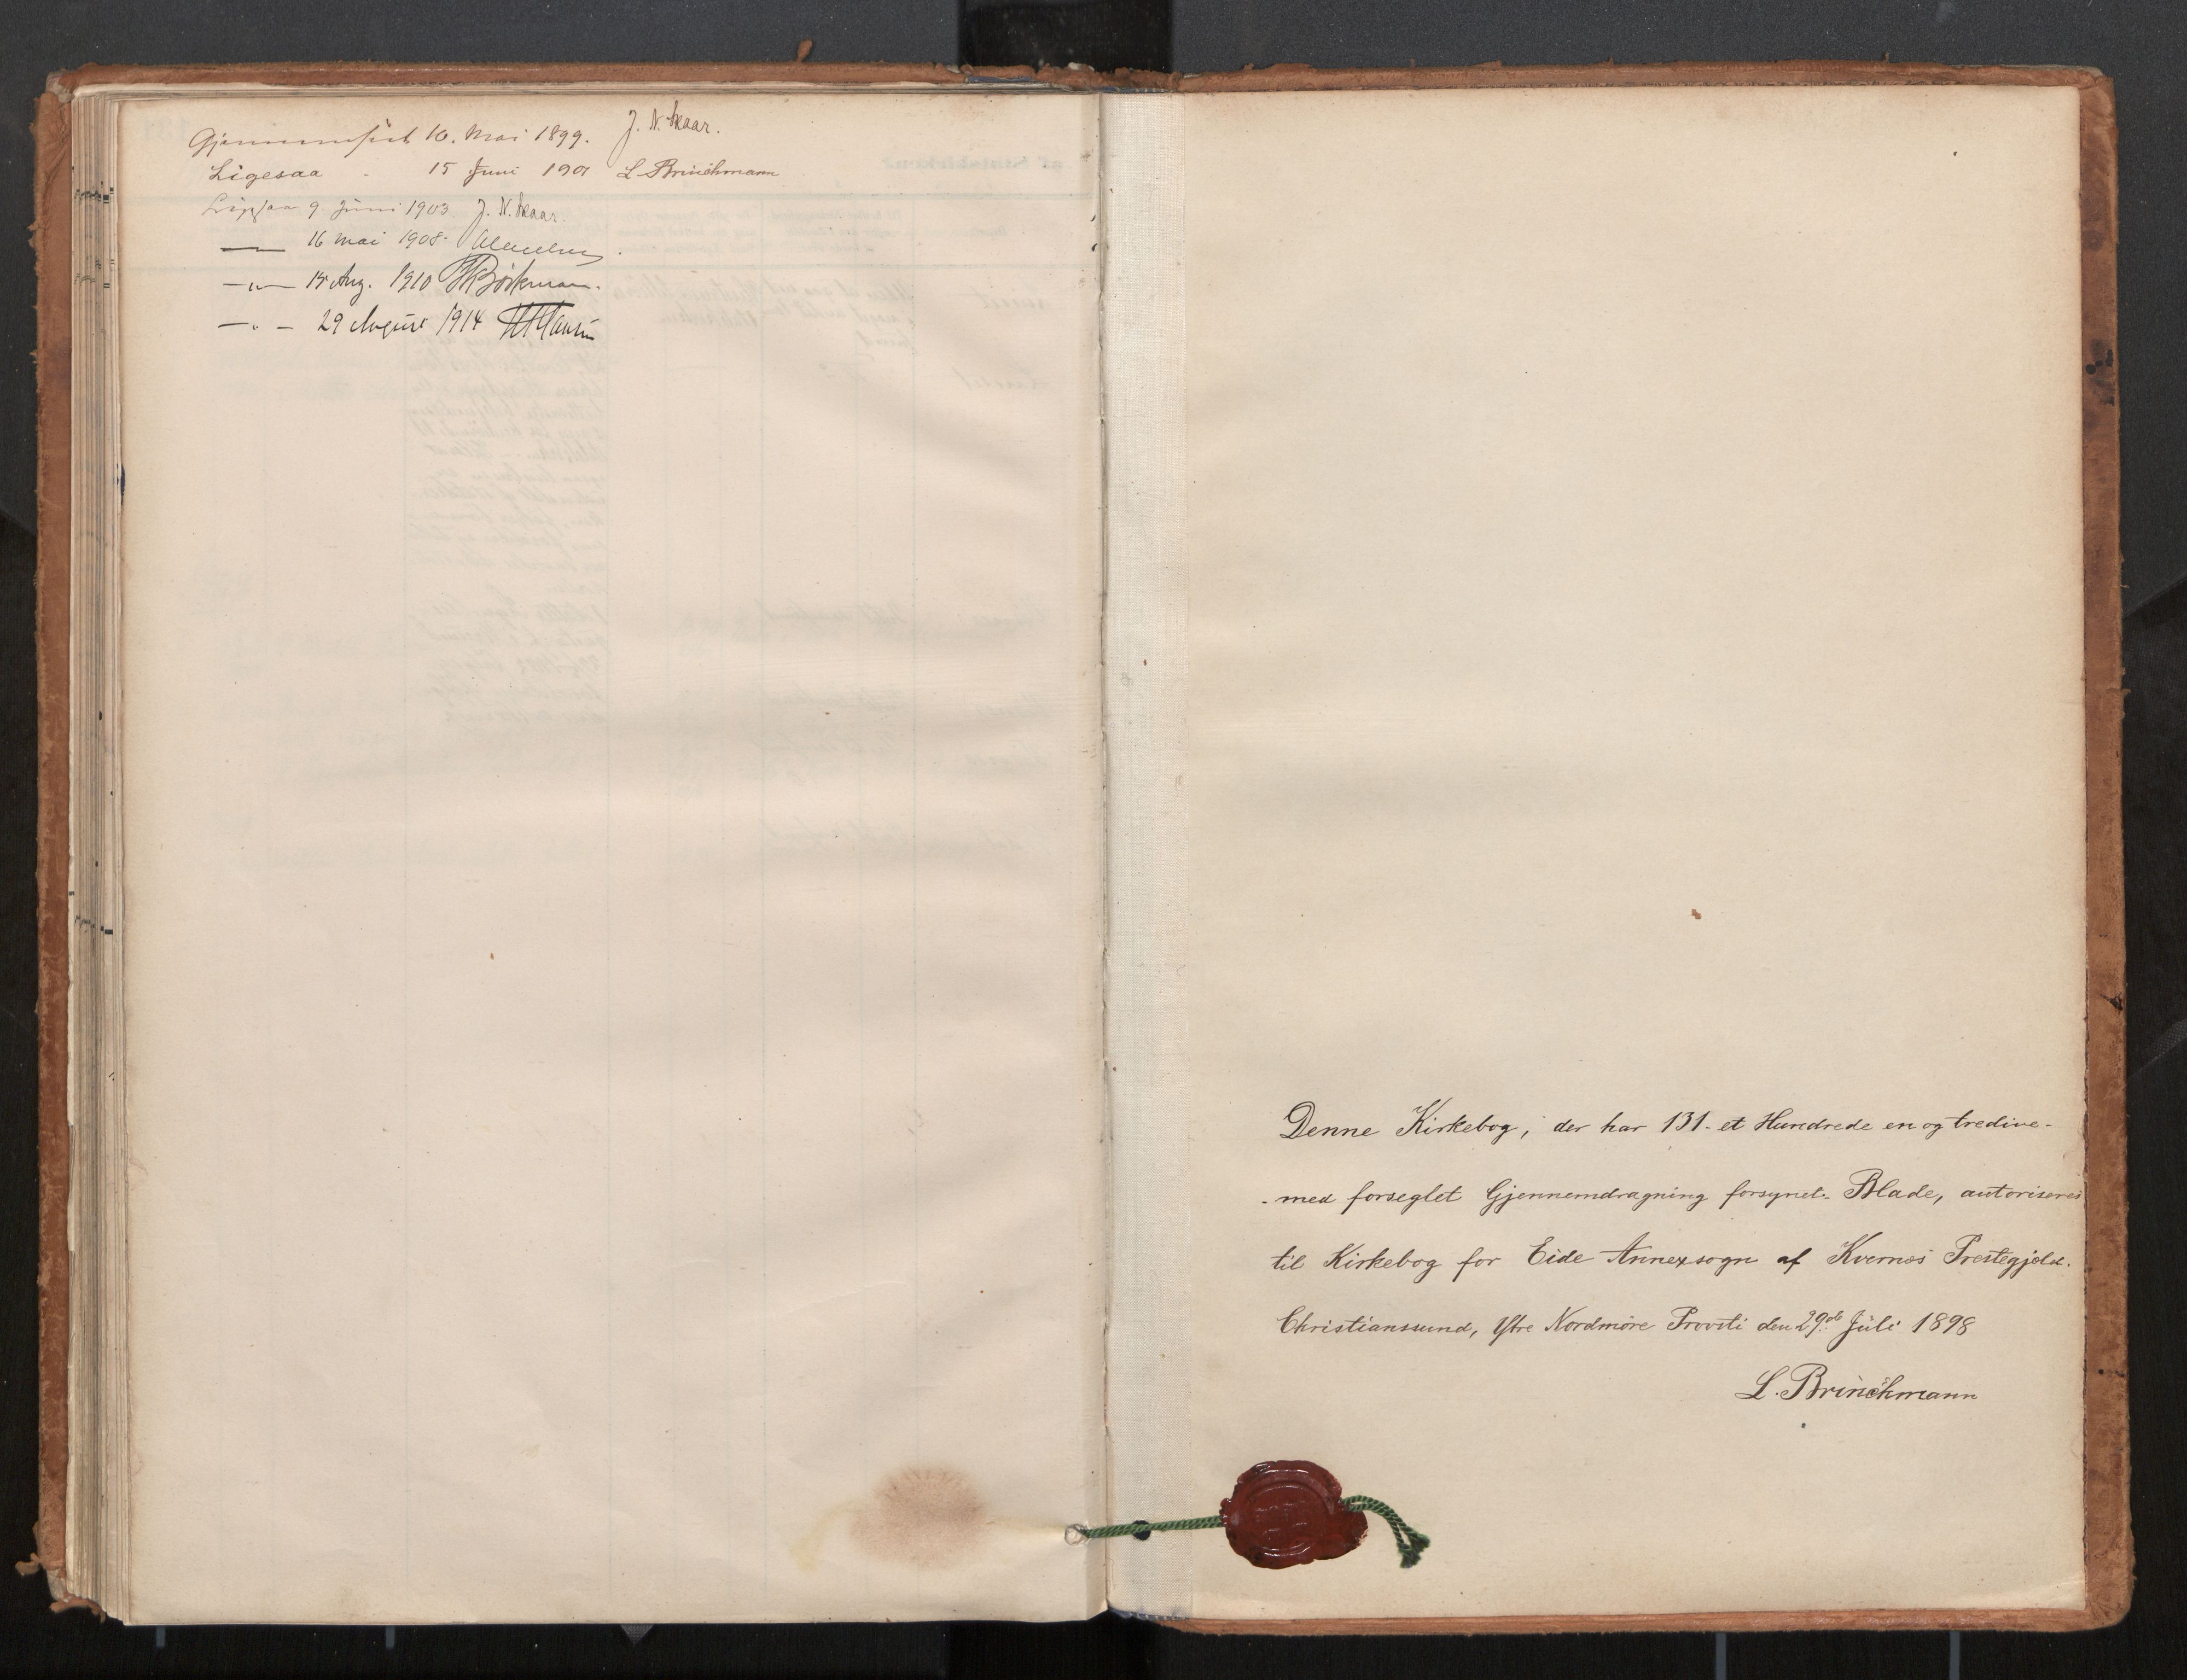 Gjennemseet 16. Mai 1899. J. N. Skaar.
Ligesaa - 15 Juni 1901 L. Brinchmann
Ligesaa 9 Juni 1903. J. N. Skaar.
— 16 mai 1908.
—"— 15 Aug. 1910 Bøckman.
—"— 29 August 1914
Denne Kirkebog, der har 131 - et Hundrede en og tredive -
- med forseglet Gjennemdragning forsynet - Blade, autoriseres
til Kirkebog for Eide Annexsogn af Kvernes Prestegjeld.
Christianssund, Ytre Nordmøre Provsti den 29de Juli 1898
L. Brinchmann